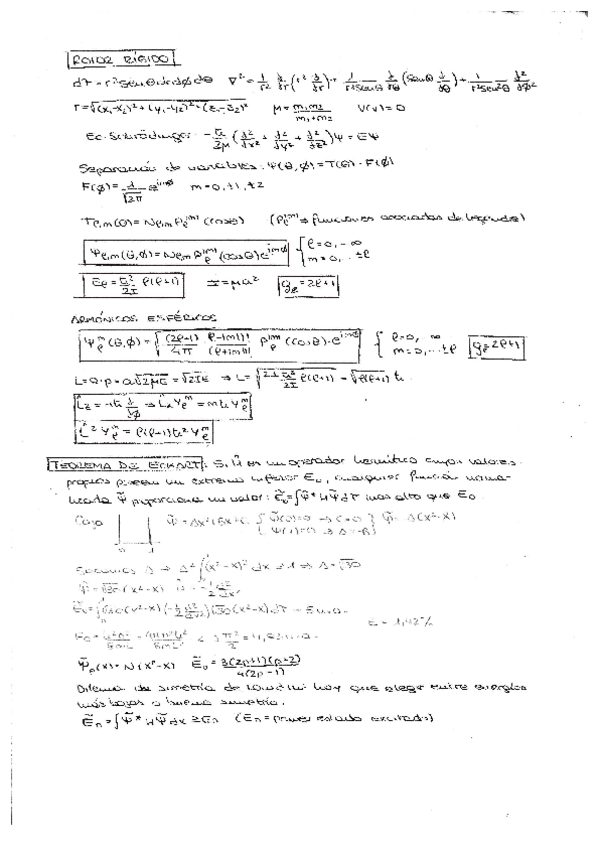 ROTOR RÍGIDO
dτ = r² senθ dr dϕ dθ   ∇² = 1/r² d/dr (r² d/dr) + 1/(r² senθ) d/dθ (senθ d/dθ) + 1/(r² sen²θ) d²/dϕ²
r = √((x₁-x₂)² + (y₁-y₂)² + (z₁-z₂)²)   μ = m₁m₂/(m₁+m₂)   V(r) = 0
Ec. Schrödinger: -ħ²/2μ (d²/dx² + d²/dy² + d²/dz²) Ψ = EΨ
Separación de variables: Ψ(θ,ϕ) = T(θ)·F(ϕ)
F(ϕ) = 1/√2π e^{imϕ}   m = 0, ±1, ±2
T_{ℓ,m}(θ) = N_{ℓ,m} P_ℓ^{|m|} (cosθ)   (P_ℓ^{|m|} ⇒ funciones asociadas de Legendre)
Ψ_{ℓ,m}(θ,ϕ) = N_{ℓ,m} P_ℓ^{|m|} (cosθ) e^{imϕ}   { ℓ = 0, ... ∞
m = 0, ... ±ℓ
E_ℓ = ħ²/2I ℓ(ℓ+1)   I = μa²   g_ℓ = 2ℓ+1
ARMÓNICOS ESFÉRICOS
Y_ℓ^m (θ,ϕ) = √((2ℓ+1)/4π (ℓ-|m|)!/(ℓ+|m|)!) P_ℓ^{|m|} (cosθ)·e^{imϕ}   { ℓ = 0, ∞   g_ℓ = 2ℓ+1
m = 0, ... ±ℓ
L = a·p = a√2μE = √2IE ⇒ L = √(2I ħ²/2I ℓ(ℓ+1)) = √ℓ(ℓ+1) ħ
L̂_z = -iħ d/dϕ ⇒ L̂_z Y_ℓ^m = mħ Y_ℓ^m
L̂² Y_ℓ^m = ℓ(ℓ+1) ħ² Y_ℓ^m
TEOREMA DE ECKART: Si Ĥ es un operador hermítico cuyos valores
propios poseen un extremo inferior E₀, cualquier función norma-
lizada Ψ̃ proporciona un valor: Ẽ₀ = ∫Ψ̃* Ĥ Ψ̃ dτ mas alto que E₀.
Caja   Ψ̃ = Ax² + Bx + C   { Ψ̃(0) = 0 → C = 0   } Ψ̃ = A(x²-x)
Ψ̃(1) = 0 → A = -B
0   1
A ⇒ A² ∫(x²-x)² dx = 1 ⇒ A = √30
Ψ̃ = √30 (x²-x)   Ĥ = -1/2 d²/dx²
Ẽ₀ = ∫√30 (x²-x) (-1/2 d²/dx²) √30 (x²-x) dτ = 5 u.a.
Ψ̃_p(x) = N(x^p - x)   Ẽ₀ =
Dilema de simetría de Löwdin: hay que elegir entre energías
más bajas o buena simetría.
Ẽ_n = ∫Ψ̃* Ĥ Ψ̃ dx ≥ E_n   (E_n = primer estado excitado)